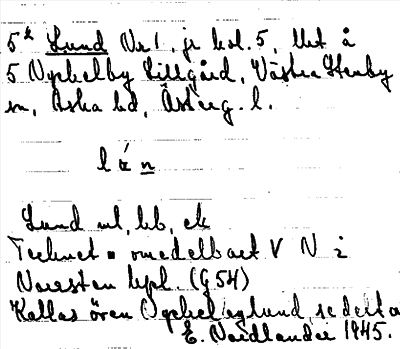 5k Lund Nr 1, jr kol. 5, Utt å
5 Nyckelby Lillgård, Västra Stenby
sn, Aska hd, Österg. l.
Lund ul, bb, ek
Tecknet omedelbart V N i
Naresten kpl. (G 54)
Kallas även Nyckelbylund, se detta
E. Nordlander 1945.